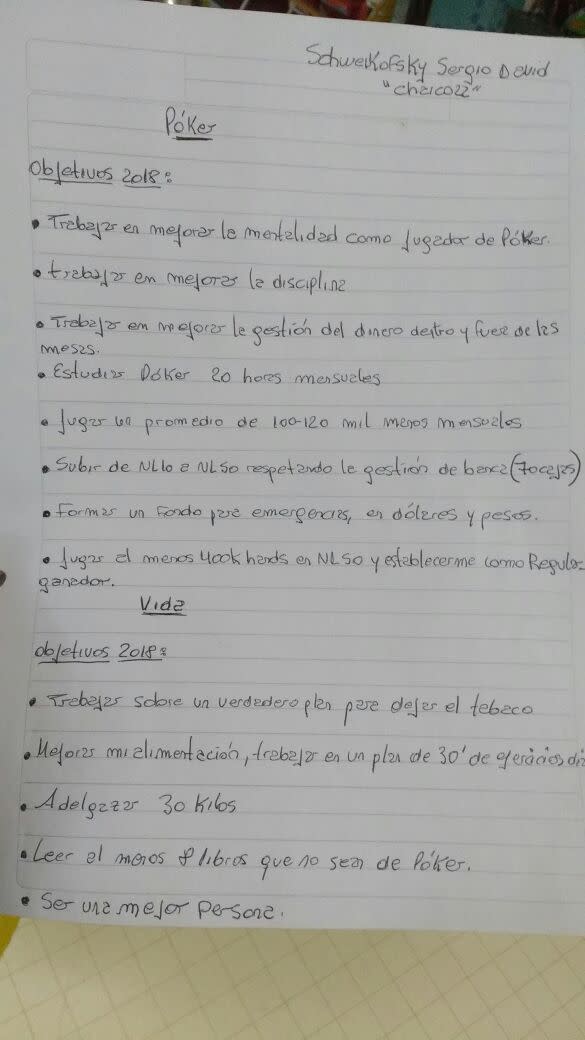 Schweikofsky Sergio David
"chaco22"
Póker
Objetivos 2018:
• Trabajar en mejorar la mentalidad como jugador de Póker.
• trabajar en mejorar la disciplina
• Trabajar en mejorar la gestión del dinero dentro y fuera de las
mesas.
• Estudiar Póker 20 horas mensuales
• Jugar un promedio de 100-120 mil manos mensuales
• Subir de NL10 a NL50 respetando la gestión de banca (70 cajas)
• Formar un fondo para emergencias, en dólares y pesos.
• Jugar al menos 400k hands en NL50 y establecerme como Regular
ganador.
Vida
objetivos 2018:
• Trabajar sobre un verdadero plan para dejar el tabaco
• Mejorar mi alimentación, trabajar en un plan de 30' de ejercicios di
• Adelgazar 30 Kilos
• Leer al menos 8 libros que no sean de Póker.
• Ser una mejor persona.